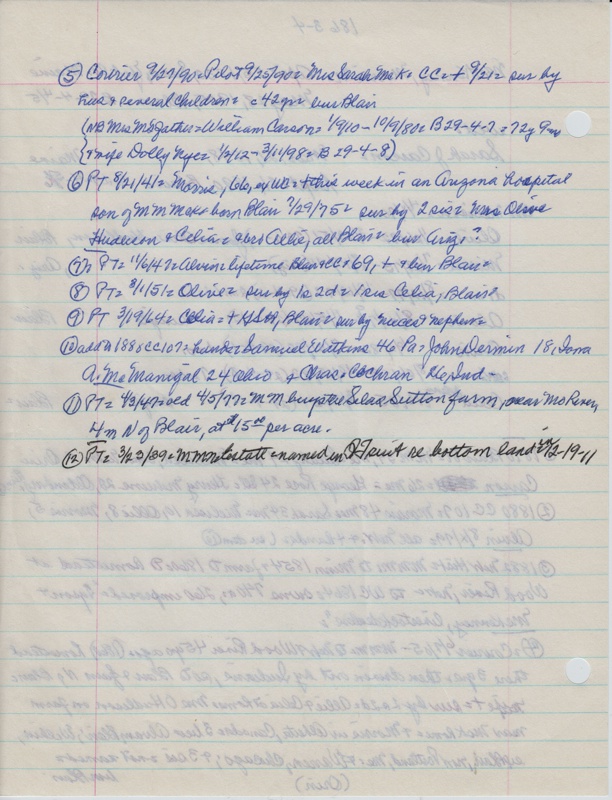 ⑤ Courier 9/27/90 = Pilot 9/25/90 = Mrs Sarah McK = CC = + 9/21 = sur by
hus + several children = = 42 yr = bur Blair
(NB Mrs Mc father = William Carson = 1/9/10 - 10/9/80 = B 29-4-7 = 72 y 9m
(+ wife Dolly Nye = 2/12 - 3/11/98 = B 29-4-8)
⑥ PT 8/21/41 = Morris, 66, = + this week in an Arizona hospital
son of M M McK + born Blair 7/29/75 = sur by 2 sis = Mrs Olive
Huderson + Celia = + bro Allie, all Blair = bur Ariz?
⑦ PT = 11/6/47 = Alvin = lifetime Blair + CC + 69, + + bur Blair =
⑧ PT = 8/1/51 = Olive = sur by 1s 2d = 1 sis Celia, Blair =
⑨ PT 3/19/64 = Celia = + HSM, Blair = sur by nieces + nephews =
⑩ add'n 1880 CC 107 = Samuel Watkins 46 Pa = John 18, Iona
A. McManigal 24 Ohio + Chas = Cochran Ind -
⑪ PT = 4/3/47 = 4/5/77 = M M buys the Silas Sutton farm, near
4 m N of Blair, at $15.00 per acre.
⑫ PT = 3/23/89 = M M estate = named in suit re bottom land = 12-19-11